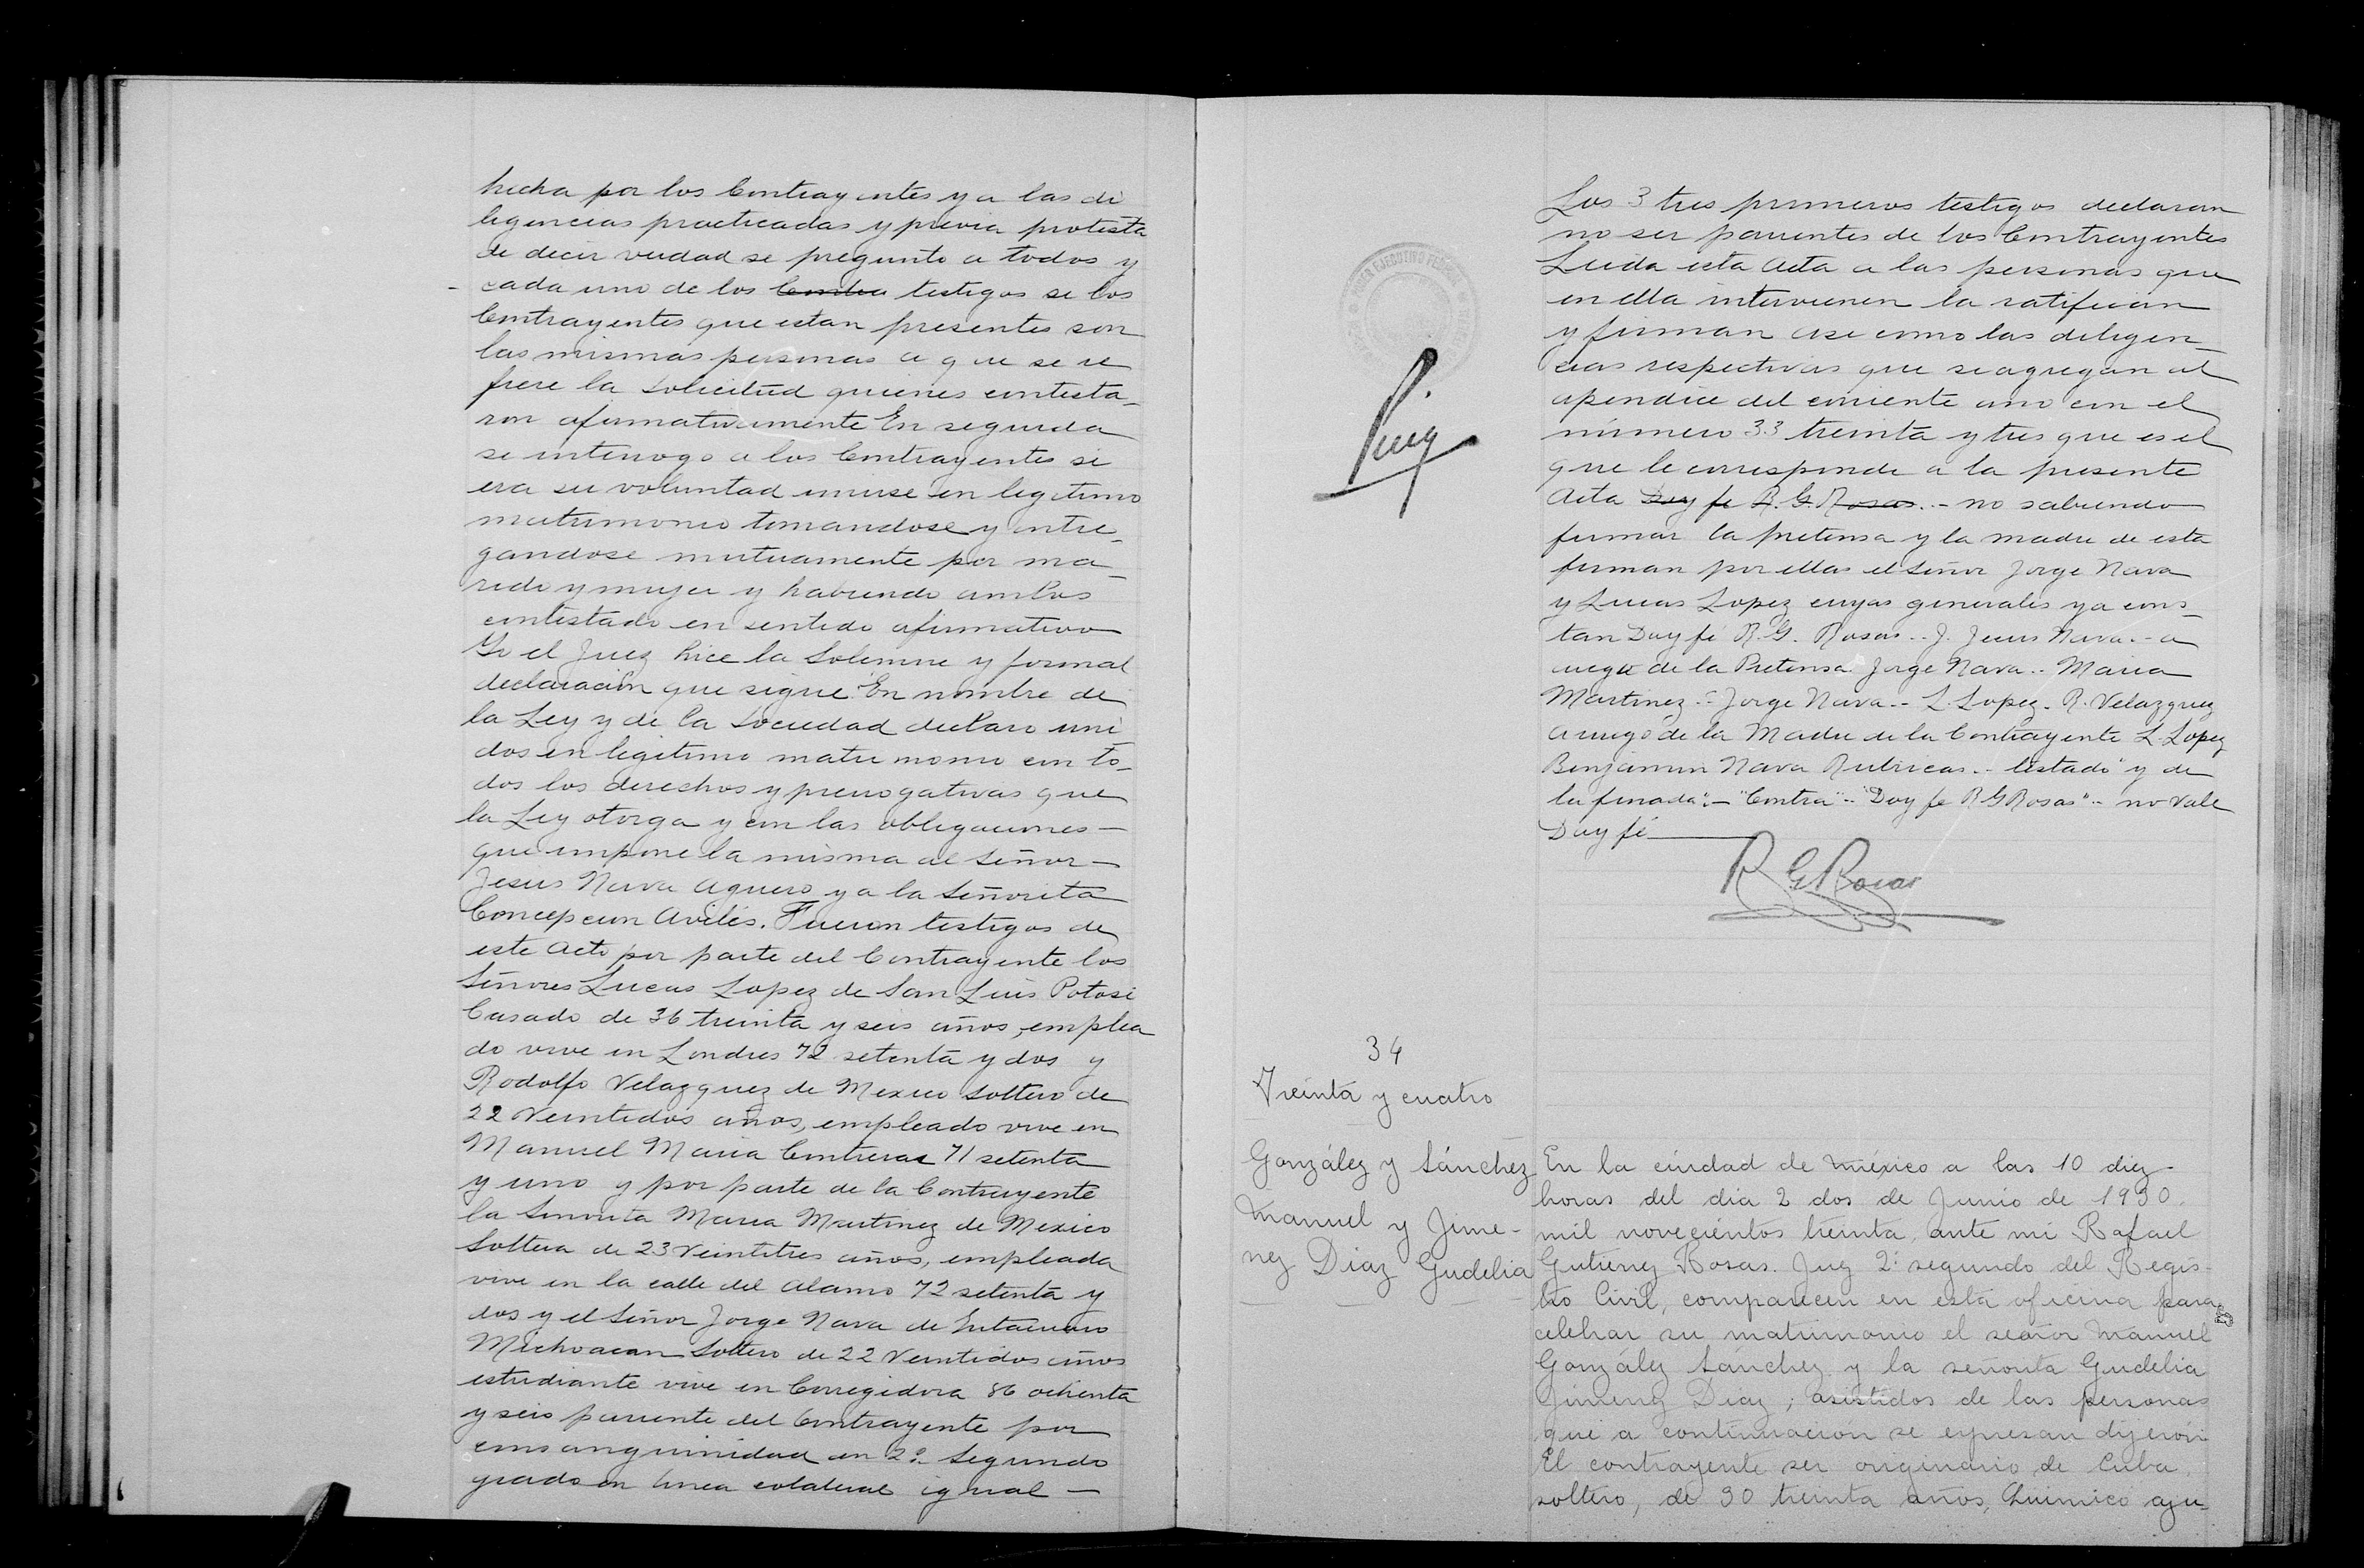 hecha por los Contrayentes y a las di
ligencias practicadas y previa protesta
de decir verdad se pregunto a todos y
cada uno de los Contra testigos si los
Contrayentes que estan presentes son
las mismas personas a que se re
fiere la solicitud quienes contesta-
ron afirmativamente En seguida
se interrogo a los Contrayentes si
era su voluntad unirse en legitimo
matrimonio tomandose y entre-
gandose mutuamente por ma-
rido y mujer y habiendo ambos
contestado en sentido afirmativo
Yo el Juez hice la solemne y formal
declaración que sigue "En nombre de
la Ley y de la Sociedad declaro uni
dos en legitimo matrimonio con to-
dos los derechos y prerrogativas que
la Ley otorga y con las obligaciones—
que impone la misma al Señor—
Jesus Nava Aguero y a la Señorita
Concepcion Avilés. Fueron testigos de
este acto por parte del Contrayente los
Señores Lucas Lopez de San Luis Potosi
Casado de 36 treinta y seis años, emplea
do vive en Londres 72 setenta y dos y
Rodolfo Velazquez de Mexico soltero de
22 Veintidos años, empleado vive en
Manuel Maria Contreras 71 setenta
y uno y por parte de la Contrayente
la Señorita Maria Martinez de Mexico
Soltera de 23 Veintitres años, empleada
vive en la calle del Alamo 72 setenta y
dos y el Señor Jorge Nava de
Michoacan Soltero de 22 Veintidos años
estudiante vive en Corregidora 86 ochenta
y seis pariente del Contrayente por
consanguinidad en 2º Segundo
grado en linea colateral igual—
Los 3 tres primeros testigos declaran
no ser parientes de los Contrayentes
Leida esta Acta a las personas que
en ella intervienen la ratifican
y firman asi como las diligen-
cias respectivas que se agregan al
apendice del corriente año con el
número 33 treinta y tres que es el
que le corresponde a la presente
Acta Doy fe R. G. Rosas.- no sabiendo
firmar la pretensa y la madre de esta
firman por ellas el señor Jorge Nava
y Lucas Lopez cuyas generales ya cons-
tan Doy fé R. G. Rosas.- J. Jesus Nava.- a
ruego de la Pretensa Jorge Nava.- Maria
Martinez.- Jorge Nava.- L. Lopez. R. Velazquez
a ruego de la Madre de la Contrayente L. Lopez
Benjamin Nava Rubricas.- testado "y de
la finada".- "Contra".- "Doy fe R G Rosas".- no vale
Doy fé
R G Rosas
Puig
34
Treinta y cuatro
González y Sánchez
Manuel y Jime-
nez Diaz Gudelia
En la ciudad de México a las 10 diez-
horas del dia 2 dos de Junio de 1930
mil novecientos treinta, ante mi Rafael
Gutierrez Rosas. Juez 2º segundo del Regis-
tro Civil, comparecen en esta oficina para
celebrar su matrimonio el señor Manuel
González Sánchez y la señorita Gudelia
Jimenez Diaz; asistidos de las personas
que a continuación se expresan dijeron
El contrayente ser originario de Cuba,
soltero, de 30 treinta años, Quimico azu-